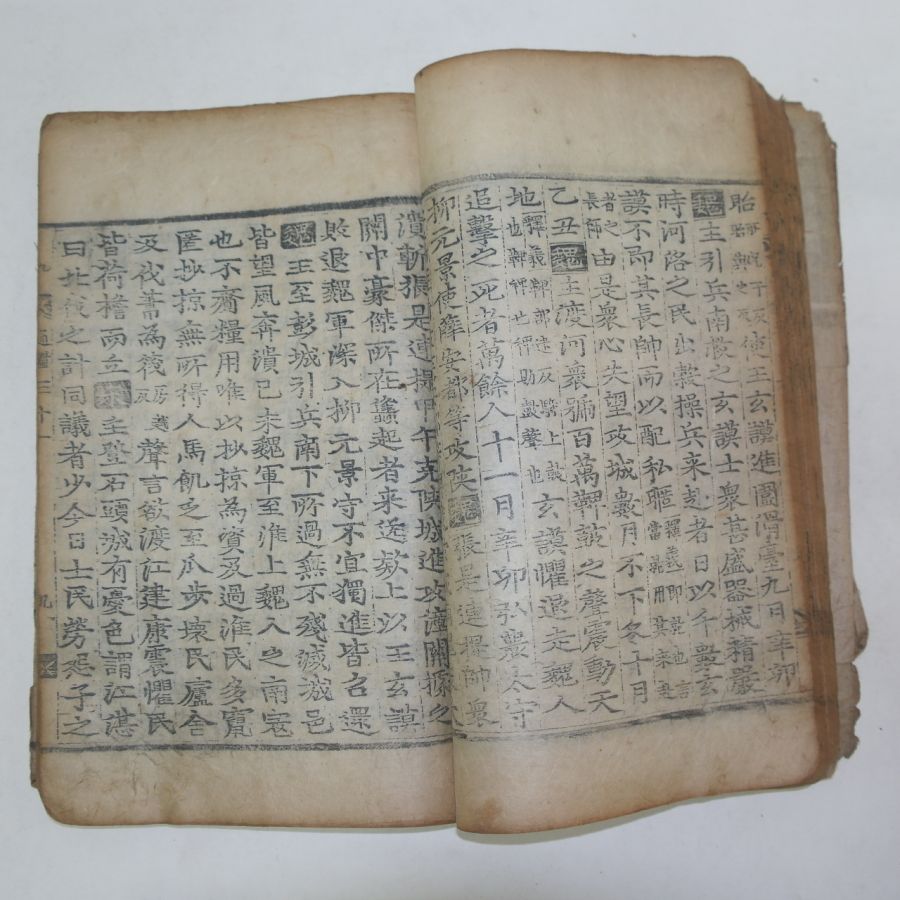 眙使王玄謨進圍滑臺九月辛卯
魏主引兵南救之玄謨士衆甚盛器械精嚴
時河洛之民出穀操兵來赴者日以千數玄
謨不即其長帥而以配私暱
長帥者之由是衆心失望攻城數月不下冬十月
乙丑魏主渡河衆號百萬鞞鼓之聲震動天
地玄謨懼退走魏人
追擊之死者萬餘人十一月辛卯弘農太守
柳元景使薛安都等攻陝魏張是連提帥衆
潰斬張是連提甲午克陝城進攻潼關據之
關中豪傑所在蠭起者來送款上以王玄謨
敗退魏軍深入柳元景守不宜獨進皆召還
魏主至彭城引兵南下所過無不殘滅城邑
皆望風奔潰己未魏軍至淮上魏人之南寇
也不齎糧用唯以抄掠爲資及過淮民多竄
匿抄掠無所得人馬飢乏至瓜步壞民廬舍
及伐葦爲筏聲言欲渡江建康震懼民
皆荷擔而立宋主登石頭城有憂色謂江湛
曰北伐之計同議者少今日士民勞怨子之